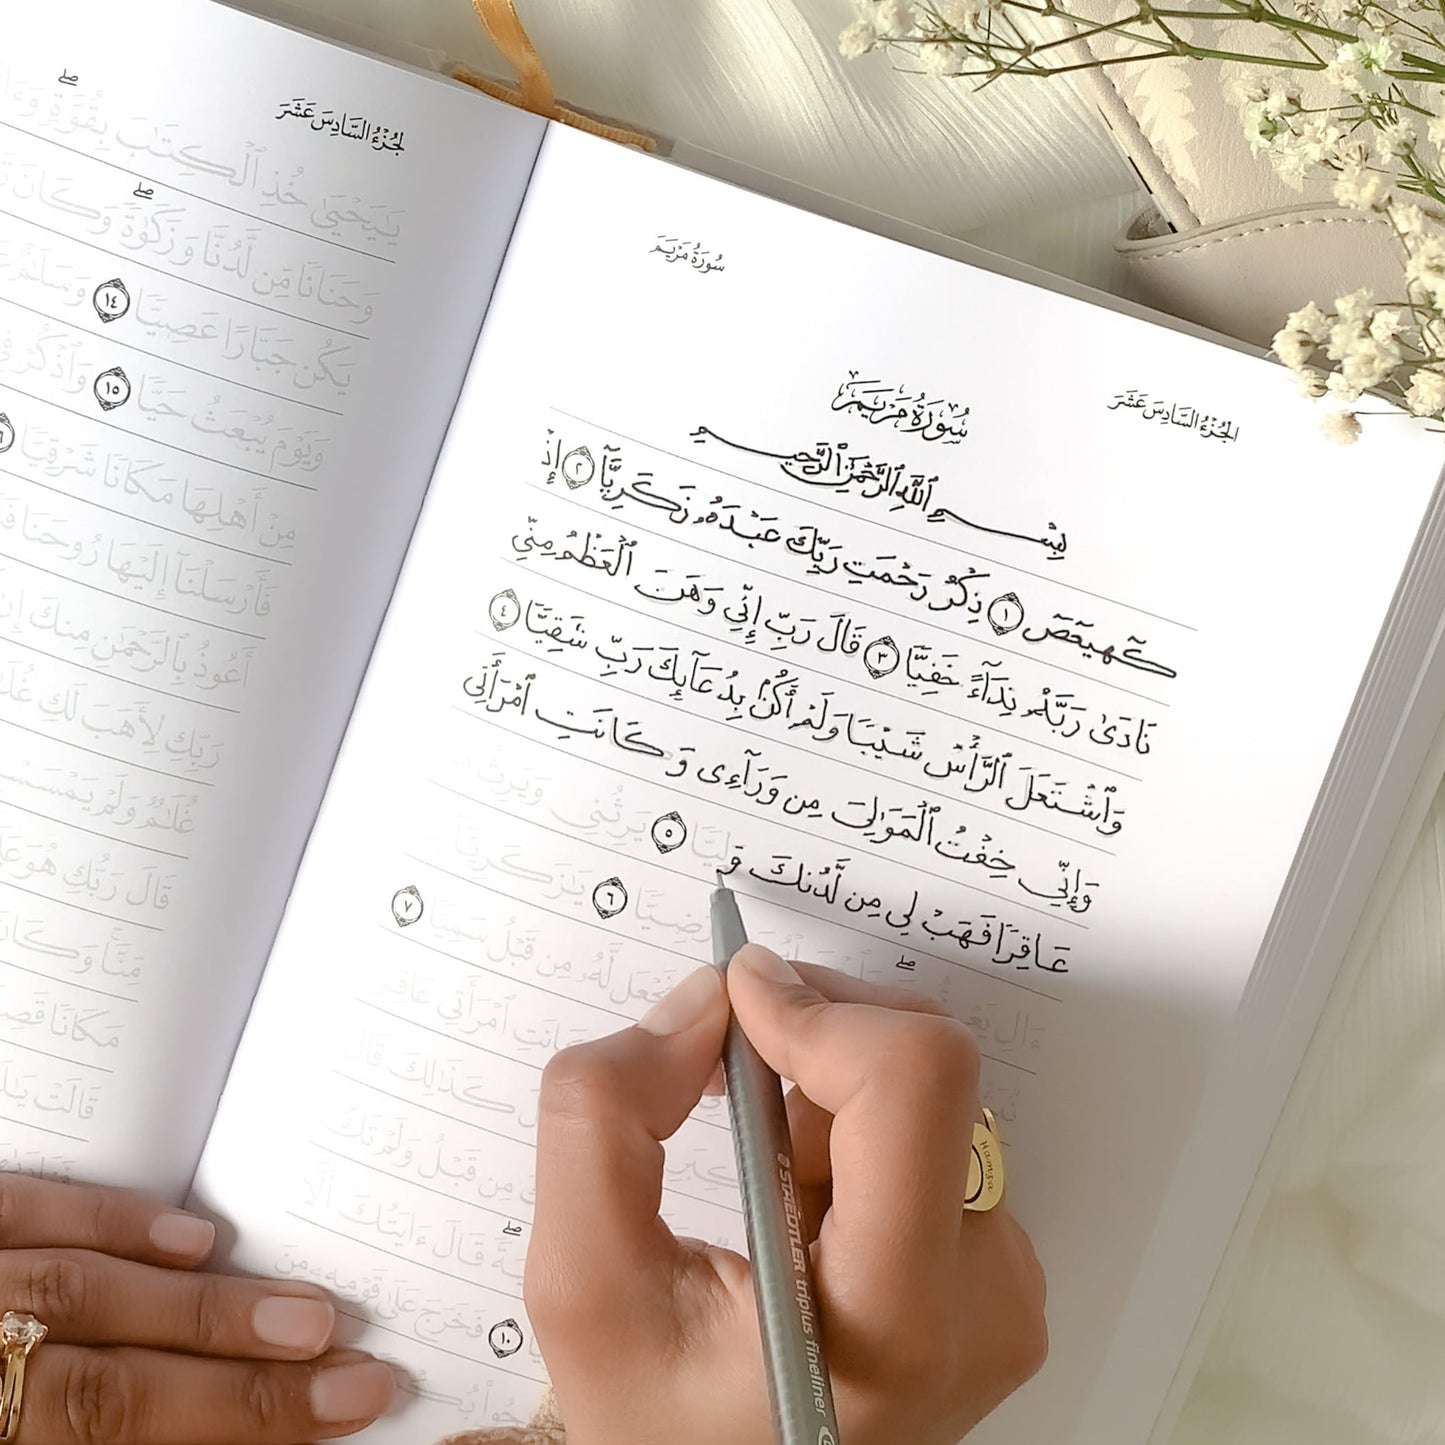 الجُزْءُ السَّادِسَ عَشَرَ
سُورَةُ مَرْيَمَ
سُورَةُ مَرْيَمَ
بِسْمِ ٱللَّهِ ٱلرَّحْمَٰنِ ٱلرَّحِيمِ
كٓهيعٓصٓ ١ ذِكْرُ رَحْمَتِ رَبِّكَ عَبْدَهُۥ زَكَرِيَّآ ٢ إِذْ
نَادَىٰ رَبَّهُۥ نِدَآءً خَفِيًّا ٣ قَالَ رَبِّ إِنِّي وَهَنَ ٱلْعَظْمُ مِنِّي
وَٱشْتَعَلَ ٱلرَّأْسُ شَيْبًا وَلَمْ أَكُنۢ بِدُعَآئِكَ رَبِّ شَقِيًّا ٤
وَإِنِّي خِفْتُ ٱلْمَوَٰلِيَ مِن وَرَآءِى وَكَانَتِ ٱمْرَأَتِي
عَاقِرًا فَهَبْ لِي مِن لَّدُنكَ وَلِيًّا ٥ يَرِثُنِي وَيَرِثُ
ءَالِ رَضِيًّا ٦ يَٰزَكَرِيَّآ
نَجْعَل لَّهُۥ مِن قَبْلُ سَمِيًّا ٧
ٱمْرَأَتِي
كَذَٰلِكَ قَالَ
مِن قَبْلُ وَلَمْ تَكُ
قَالَ ءَايَتُكَ أَلَّا
١٠ فَخَرَجَ عَلَىٰ قَوْمِهِۦ مِنَ
لجُزْءُ السَّادِسَ عَشَرَ
يَٰيَحْيَىٰ خُذِ ٱلْكِتَٰبَ بِقُوَّةٍۖ
وَحَنَانًا مِّن لَّدُنَّا وَزَكَوٰةًۖ وَكَانَ
يَكُن جَبَّارًا عَصِيًّا ١٤ وَسَلَٰمٌ
وَيَوْمَ يُبْعَثُ حَيًّا ١٥ وَٱذْكُرْ فِي
مِنْ أَهْلِهَا مَكَانًا شَرْقِيًّا
فَأَرْسَلْنَآ إِلَيْهَا رُوحَنَا
أَعُوذُ بِٱلرَّحْمَٰنِ مِنكَ إِن
رَبِّكِ لِأَهَبَ لَكِ
غُلَٰمٌ وَلَمْ يَمْسَسْ
قَالَ رَبُّكِ هُوَ
مِّنَّاۚ وَكَانَ
مَكَانًا
قَالَتْ
STAEDTLER triplus fineliner